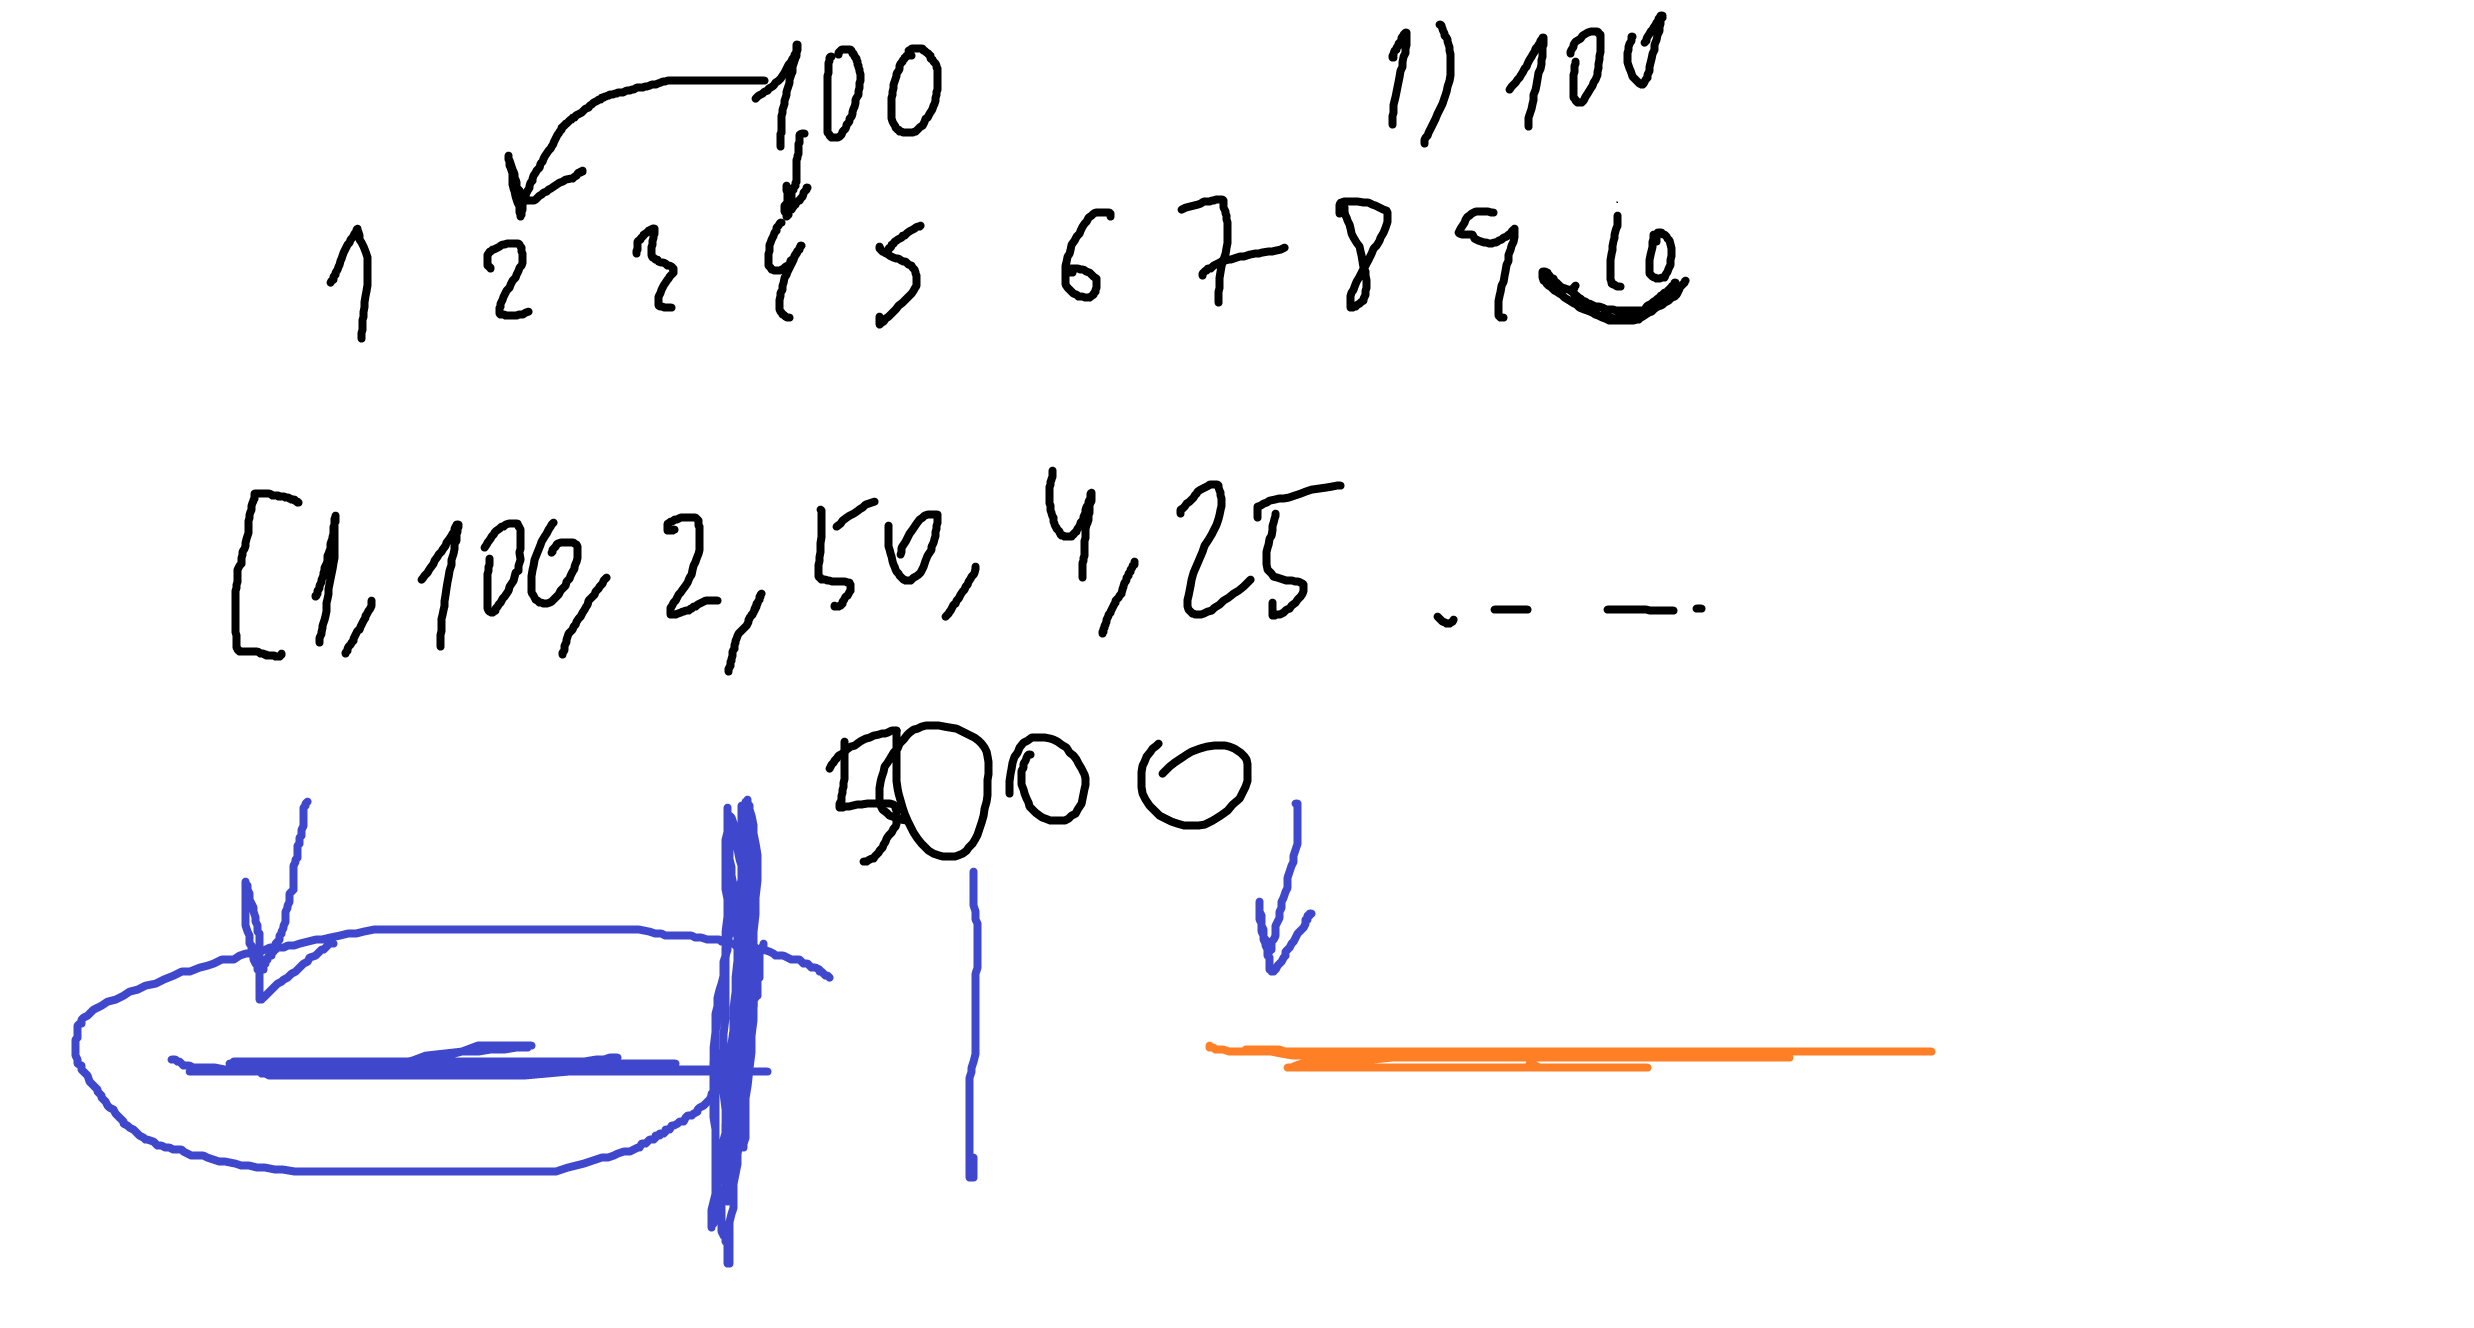 100 1) 100
1 2 3 4 5 6 7 8 9 10
[1, 100, 2, 50, 4, 25